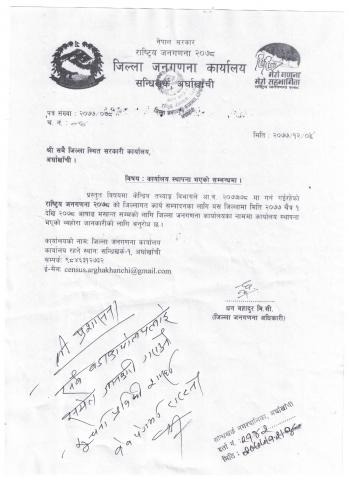 नेपाल सरकार
राष्ट्रिय जनगणना २०७८
जिल्ला जनगणना कार्यालय
सन्धिखर्क, अर्घाखाँची
मेरो गणना
मेरो सहभागिता
पत्र संख्या : २०७७/०७८
च. नं. :
मिति : २०७७/१२/०६
श्री सबै जिल्ला स्थित सरकारी कार्यालय,
अर्घाखाँची ।
विषय : कार्यालय स्थापना भएको सम्बन्धमा ।
प्रस्तुत विषयमा केन्द्रिय तथ्याङ्क विभागले आ.व. २०७७/७८ मा गर्न गईरहेको
राष्ट्रिय जनगणना २०७८ को जिल्लागत कार्य सम्पादनका लागि यस जिल्लामा मिति २०७७ चैत्र १
देखि २०७८ आषाढ मसान्त सम्मको लागि जिल्ला जनगणना कार्यालयका नाममा कार्यालय स्थापना
भएको व्यहोरा जानकारीको लागि अनुरोध छ ।
कार्यालयको नाम: जिल्ला जनगणना कार्यालय
कार्यालय रहने स्थान: सन्धिखर्क-१, अर्घाखाँची
सम्पर्क: ९८४६३१२७२४
ई-मेल: census.arghakhanchi@gmail.com
धन बहादुर बि.सी.
(जिल्ला जनगणना अधिकारी)
श्री प्रशासन
सबै वडा कार्यालयलाई
समेत जानकारी गराउने
सन्धिखर्क नगरपालिका, अर्घाखाँची
दर्ता नं.
मिति :